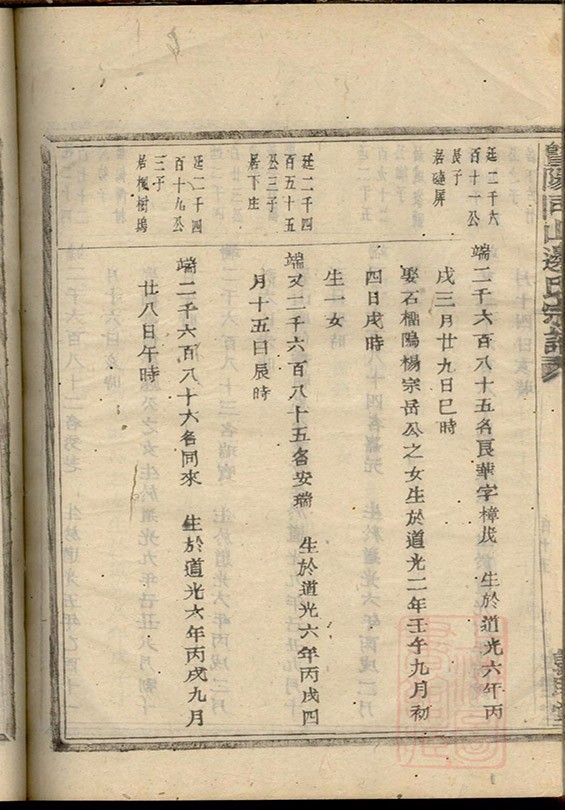 暨陽同山邊氏宗譜
廷二千六
百十一公
長子
居碰屏
端二千六百八十五名良華字樟茂　生於道光六年丙
戌三月廿九日巳時
娶石橊隖楊宗岳公之女生於道光二年壬午九月初
四日戌時
生一女
廷二千四
百五十五
公三子
居下庄
端又二千六百八十五名安瑞　生於道光六年丙戌四
月十五日辰時
廷二千四
百十九公
三子
居楓樹塢
端二千六百八十六名同來　生於道光六年丙戌九月
廿八日午時